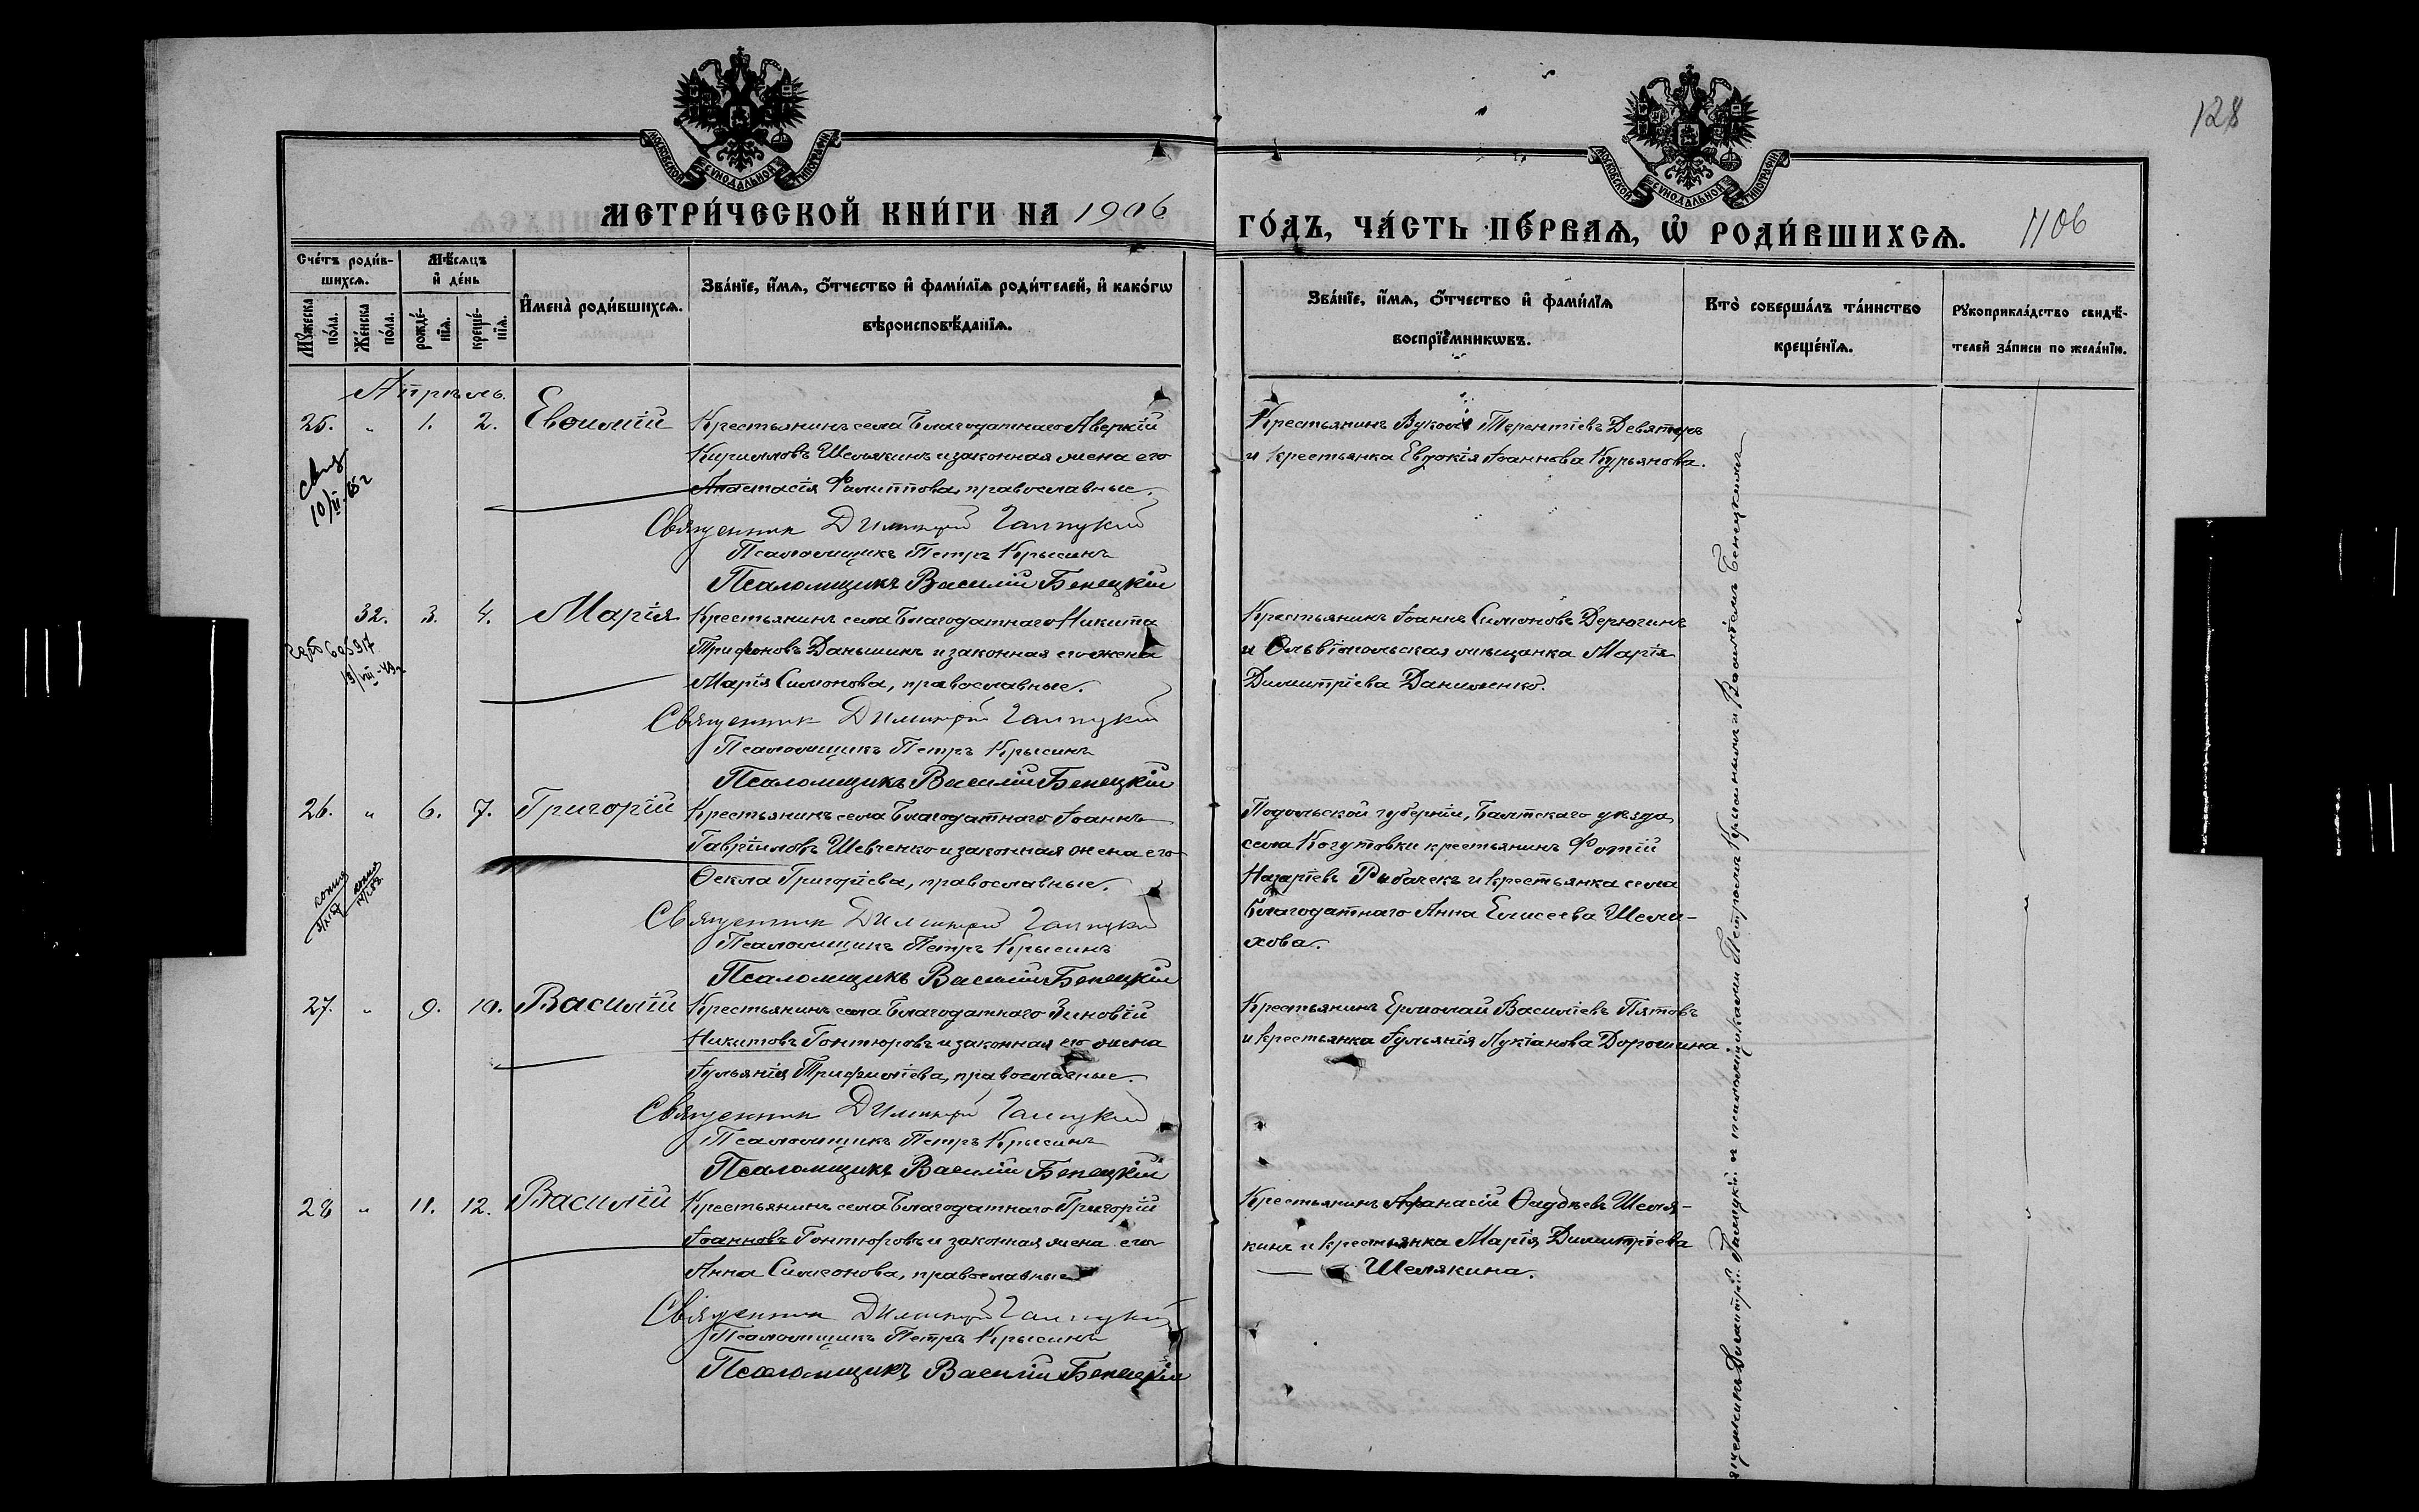 128
МОСКОВСКОЙ СѴНОДАЛЬНОЙ ТИПОГРАФІИ
МОСКОВСКОЙ СѴНОДАЛЬНОЙ ТИПОГРАФІИ
МЕТРИ́ЧЕСКОЙ КНИ́ГИ НА 1906
ГО́ДЪ, ЧА́СТЬ ПЕ́РВАѦ, Ѡ҆ РОДИ́ВШИХСѦ. 1106
Сче́тъ роди́в-
шихсѧ.
Мꙋ́жеска по́ла.
Же́нска по́ла.
Мѣ́сѧцъ
и҆ де́нь
рожде́-
нїѧ.
креще́-
нїѧ.
И҆мена̀ роди́вшихсѧ.
Зва́нїе, и҆́мѧ, ѻ҆́тчество и҆ фами́лїѧ роди́телей, и҆ како́гѡ
вѣроисповѣ́данїѧ.
Зва́нїе, и҆́мѧ, ѻ҆́тчество и҆ фами́лїѧ
воспрїе́мникѡвъ.
Кто̀ соверша́лъ та́инство
креще́нїѧ.
Рꙋкоприкла́дство свидѣ́-
телей за́писи по жела́нїю.
Апрѣль.
25. " 1. 2. Евѳимій
Крестьянинъ села Благодатнаго Аверкій
Кирилловъ Шелякинъ и законная жена его
Анастасія Филиппова, православные.
Священник Димитрий Галицкий
Псаломщикъ Петръ Крысинъ
Псаломщикъ Василій Бенецкій
Крестьянинъ Вуколъ Терентіевъ Девятовъ
и крестьянка Евдокія Іоаннова Курьянова.
10/III-65г
32. 3. 4. Марія
Крестьянинъ села Благодатнаго Никита
Трифоновъ Даньшинъ и законная его жена
Марія Симонова, православные.
Священник Димитрий Галицкий
Псаломщикъ Петръ Крысинъ
Псаломщикъ Василій Бенецкій
Крестьянинъ Іоаннъ Симоновъ Дерюгинъ
и Ольвіопольская мѣщанка Марія
Димитріева Даниленко.
26. " 6. 7. Григорій
Крестьянинъ села Благодатнаго Іоаннъ
Гавріиловъ Шевченко и законная жена его
Ѳекла Григоріева, православные.
Священник Димитрий Галицкий
Псаломщикъ Петръ Крысинъ
Псаломщикъ Василій Бенецкій
Подольской губерніи, Балтскаго уѣзда,
села Когутовки крестьянинъ Фотій
Назаріевъ Рыбачекъ и крестьянка села
Благодатнаго Анна Елисеева Шели-
хова.
копия
копия
27. " 9. 10. Василій
Крестьянинъ села Благодатнаго Зиновій
Никитовъ Гонтюровъ и законная его жена
Іульянія Трифиліева, православные.
Священник Димитрий Галицкий
Псаломщикъ Петръ Крысинъ
Псаломщикъ Василій Бенецкій
Крестьянинъ Ермолай Василіевъ Пятовъ
и крестьянка Іульянія Лукіанова Дорошина
28 " 11. 12. Василій
Крестьянинъ села Благодатнаго Григорій
Іоанновъ Гонтюровъ и законная жена его
Анна Симеонова, православные
Священник Димитрий Галицкий
Псаломщикъ Петръ Крысинъ
Псаломщикъ Василій Бенецкій
Крестьянинъ Аѳанасій Ѳаддѣевъ Шеля-
кинъ и крестьянка Марія Димитріева
Шелякина.
Димитрій Галицкій и псаломщиками Петромъ Крысинымъ и Василіемъ Бенецкимъ